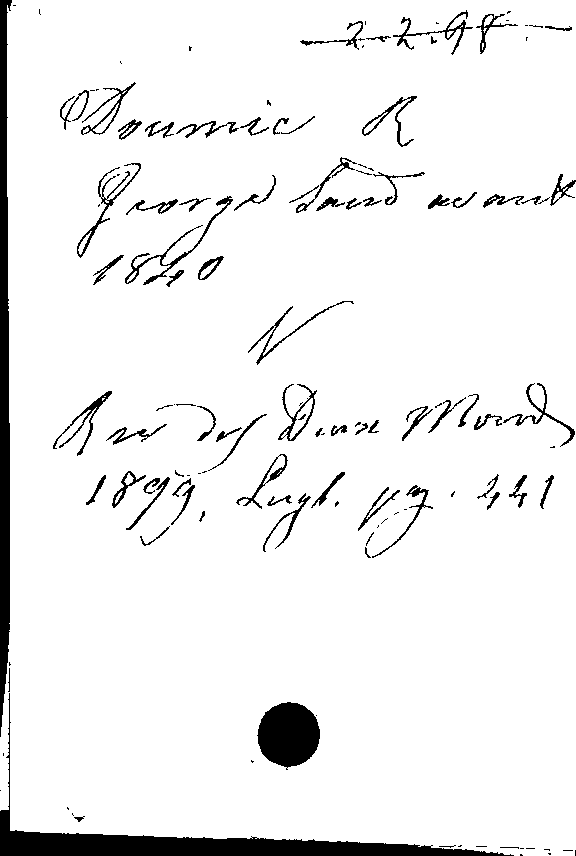 2.2.98.
Doumic R
George Sand avant
1840
V
Rev des Deux Monds
1899, Lugl. pg. 441